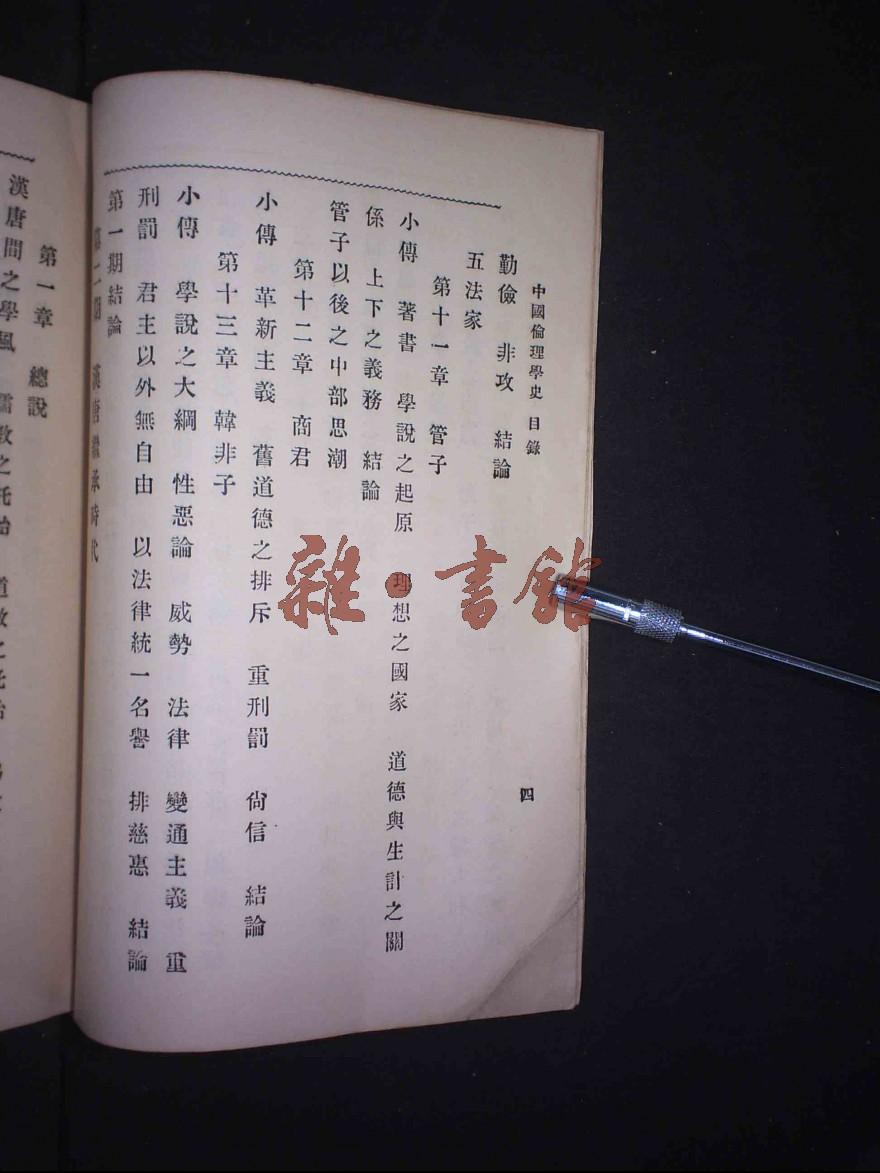 中國倫理學史 目錄
四
勤儉 非攻 結論
五法家
第十一章 管子
小傳 著書 學說之起原 理想之國家 道德與生計之關
係 上下之義務 結論
管子以後之中部思潮
第十二章 商君
小傳 革新主義 舊道德之排斥 重刑罰 尙信 結論
第十三章 韓非子
小傳 學說之大綱 性惡論 威勢 法律 變通主義 重
刑罰 君主以外無自由 以法律統一名譽 排慈惠 結論
第一期結論
第二期 漢唐繼承時代
第一章 總說
漢唐間之學風 儒教之托始 道教之托始
雜·書館